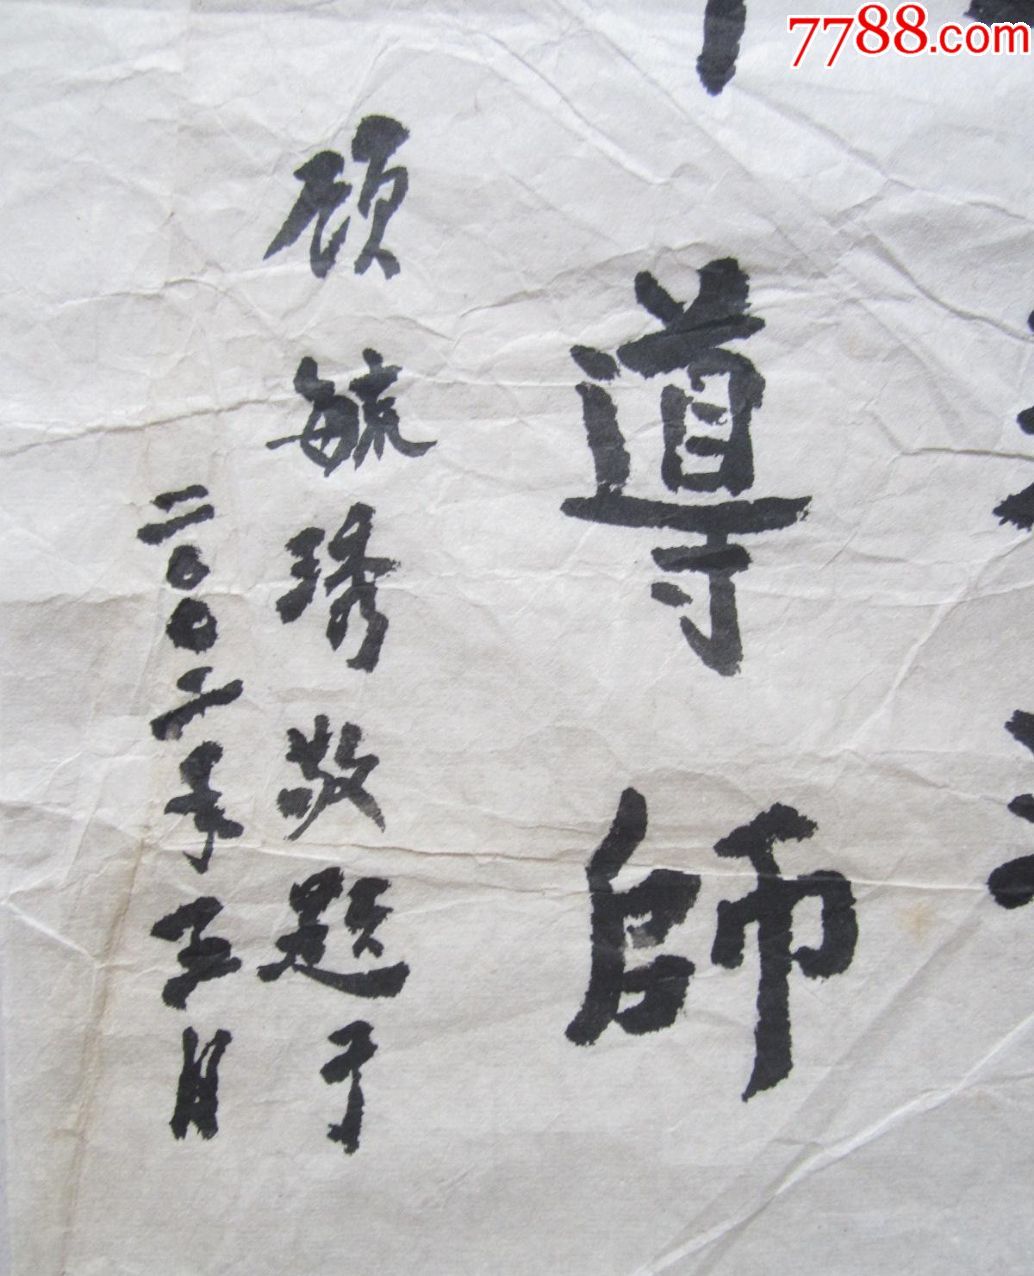 7788.com
導師
顾毓琇敬題于
二〇〇二年五月